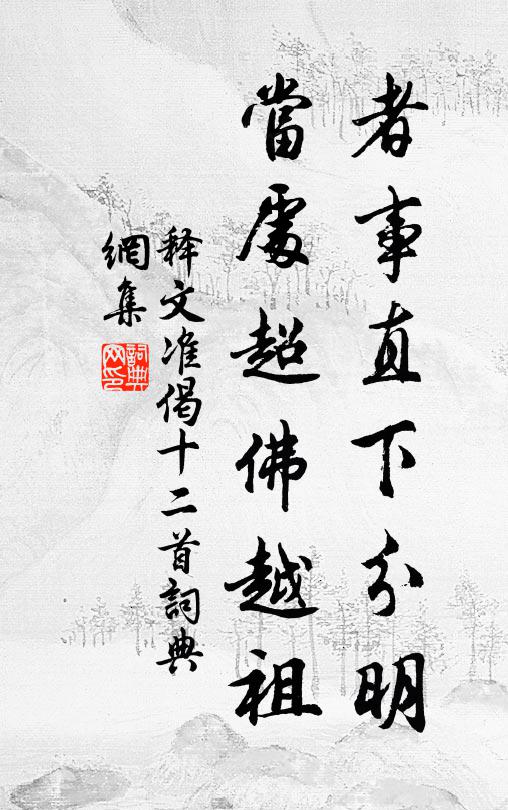 者事直下分明
當處超佛越祖
释文准偈十二首詞典
網集
詞典
网印